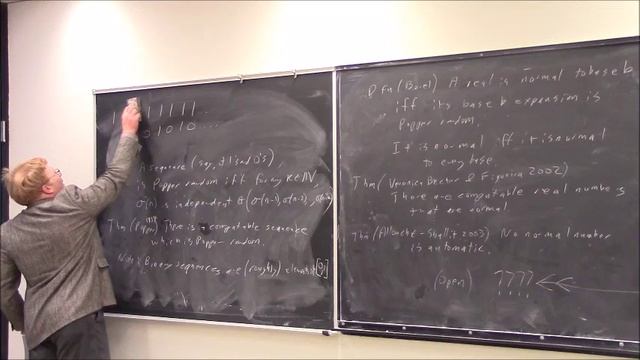 1 1 1 1 1 1
0 1 0 1 0 ...
A sequence (say, of 1's and 0's),
is Popper random iff for any k∈ℕ,
σ(n) is independent of σ(n-1), σ(n-2),
Thm (Popper) There is a computable sequence
which is Popper random.
Note: Binary sequences are (roughly) elements [0,1]
Dfn (Borel) A real is normal to base b
iff its base b expansion is
Popper random.
It is normal iff it is normal
to every base.
Thm (Veronica Becher & Figueira 2002)
There are computable real numbers
that are normal.
Thm (Allouche-Shallit 2003) No normal number
is automatic.
(Open) ????